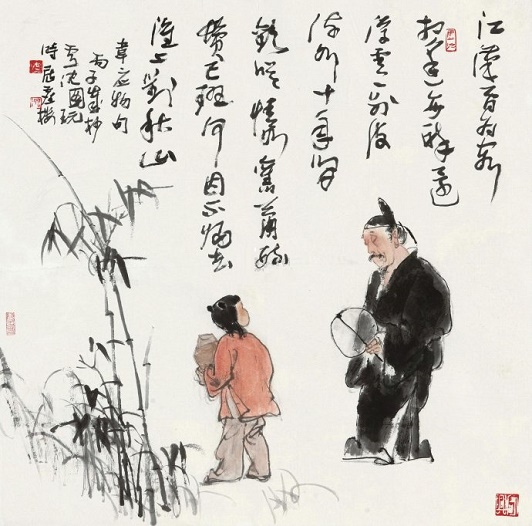 江漢曾為客
相逢每醉還
浮雲一別後
流水十年間
歡笑情如舊蕭疏
鬢已斑何因不歸去
淮上對秋山
韋應物句
丙子歲杪